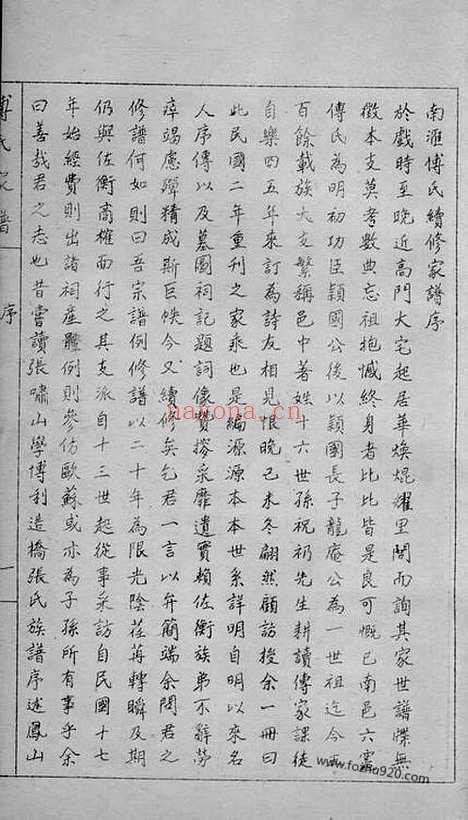 南滙傅氏續修家譜序
於戲時至晚近高門大宅起居華煥焜耀里閭而詢其家世譜牒無
徵本支莫考數典忘祖抱憾終身者比比皆是良可慨已南邑六竈
傅氏為明初功臣穎國公後以穎國長子龍庵公為一世祖迄今五
百餘載族大支繁稱邑中著姓十六世孫祝礽先生耕讀傳家課徒
自樂四五年來訂為詩友相見恨晚己未冬翩然顧訪授余一冊曰
此民國二年重刊之家乘也是編源源本本世系詳明自明以來名
人序傳以及墓圖祠記題詞像贊搜采靡遺實賴佐衡族弟不辭勞
瘁竭慮殫精成斯巨帙今又續修矣乞君一言以弁簡端余閱君之
修譜何如則曰吾宗譜例修譜以二十年為限光陰荏苒轉瞬及期
仍與佐衡商榷而行之其支派自十三世起從事采訪自民國十七
年始經費則出諸祠產體例則參仿歐蘇或亦為子孫所有事乎余
曰善哉君之志也昔嘗讀張嘯山學博利造橋張氏族譜序述鳳山
傅氏家譜
序
一
nayona.cn
www.fozhu920.com